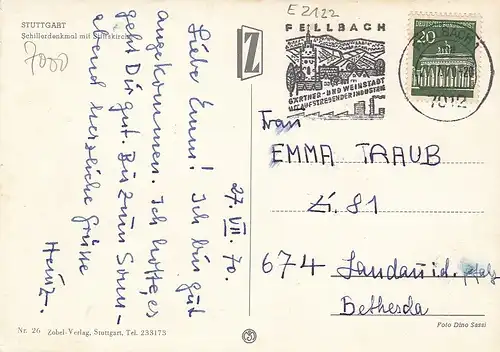 STUTTGART
Schillerdenkmal mit Stiftskirche
7000
E 2122
Liebe Emma! Ich bin gut
angekommen. Ich hoffe, es
geht Dir gut. Bis zum Sonn-
abend herzliche Grüsse
Heinz.
27. VII. 70.
Z
FELLBACH
GÄRTNER- UND WEINSTADT
MIT AUFSTREBENDER INDUSTRIE
DEUTSCHE BUNDESPOST
20
7012
Frau
EMMA TRAUB
Zi. 81
674 Landau i. d. Pfalz
Bethesda
Nr. 26 Zobel-Verlag, Stuttgart, Tel. 233173
Foto Dino Sassi